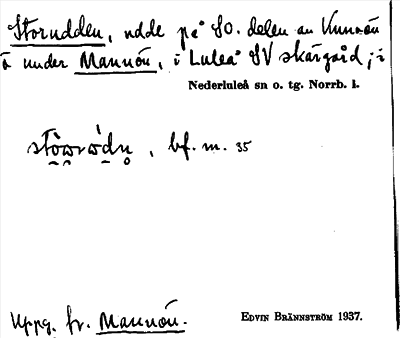 Storudden, udde på SO. delen av Vinnön
å under Mannön, i Luleå SV skärgård; i
Nederluleå sn o. tg. Norrb. l.
bf. m. 35
Uppg. fr. Mannön.
Edvin Brännström 1937.